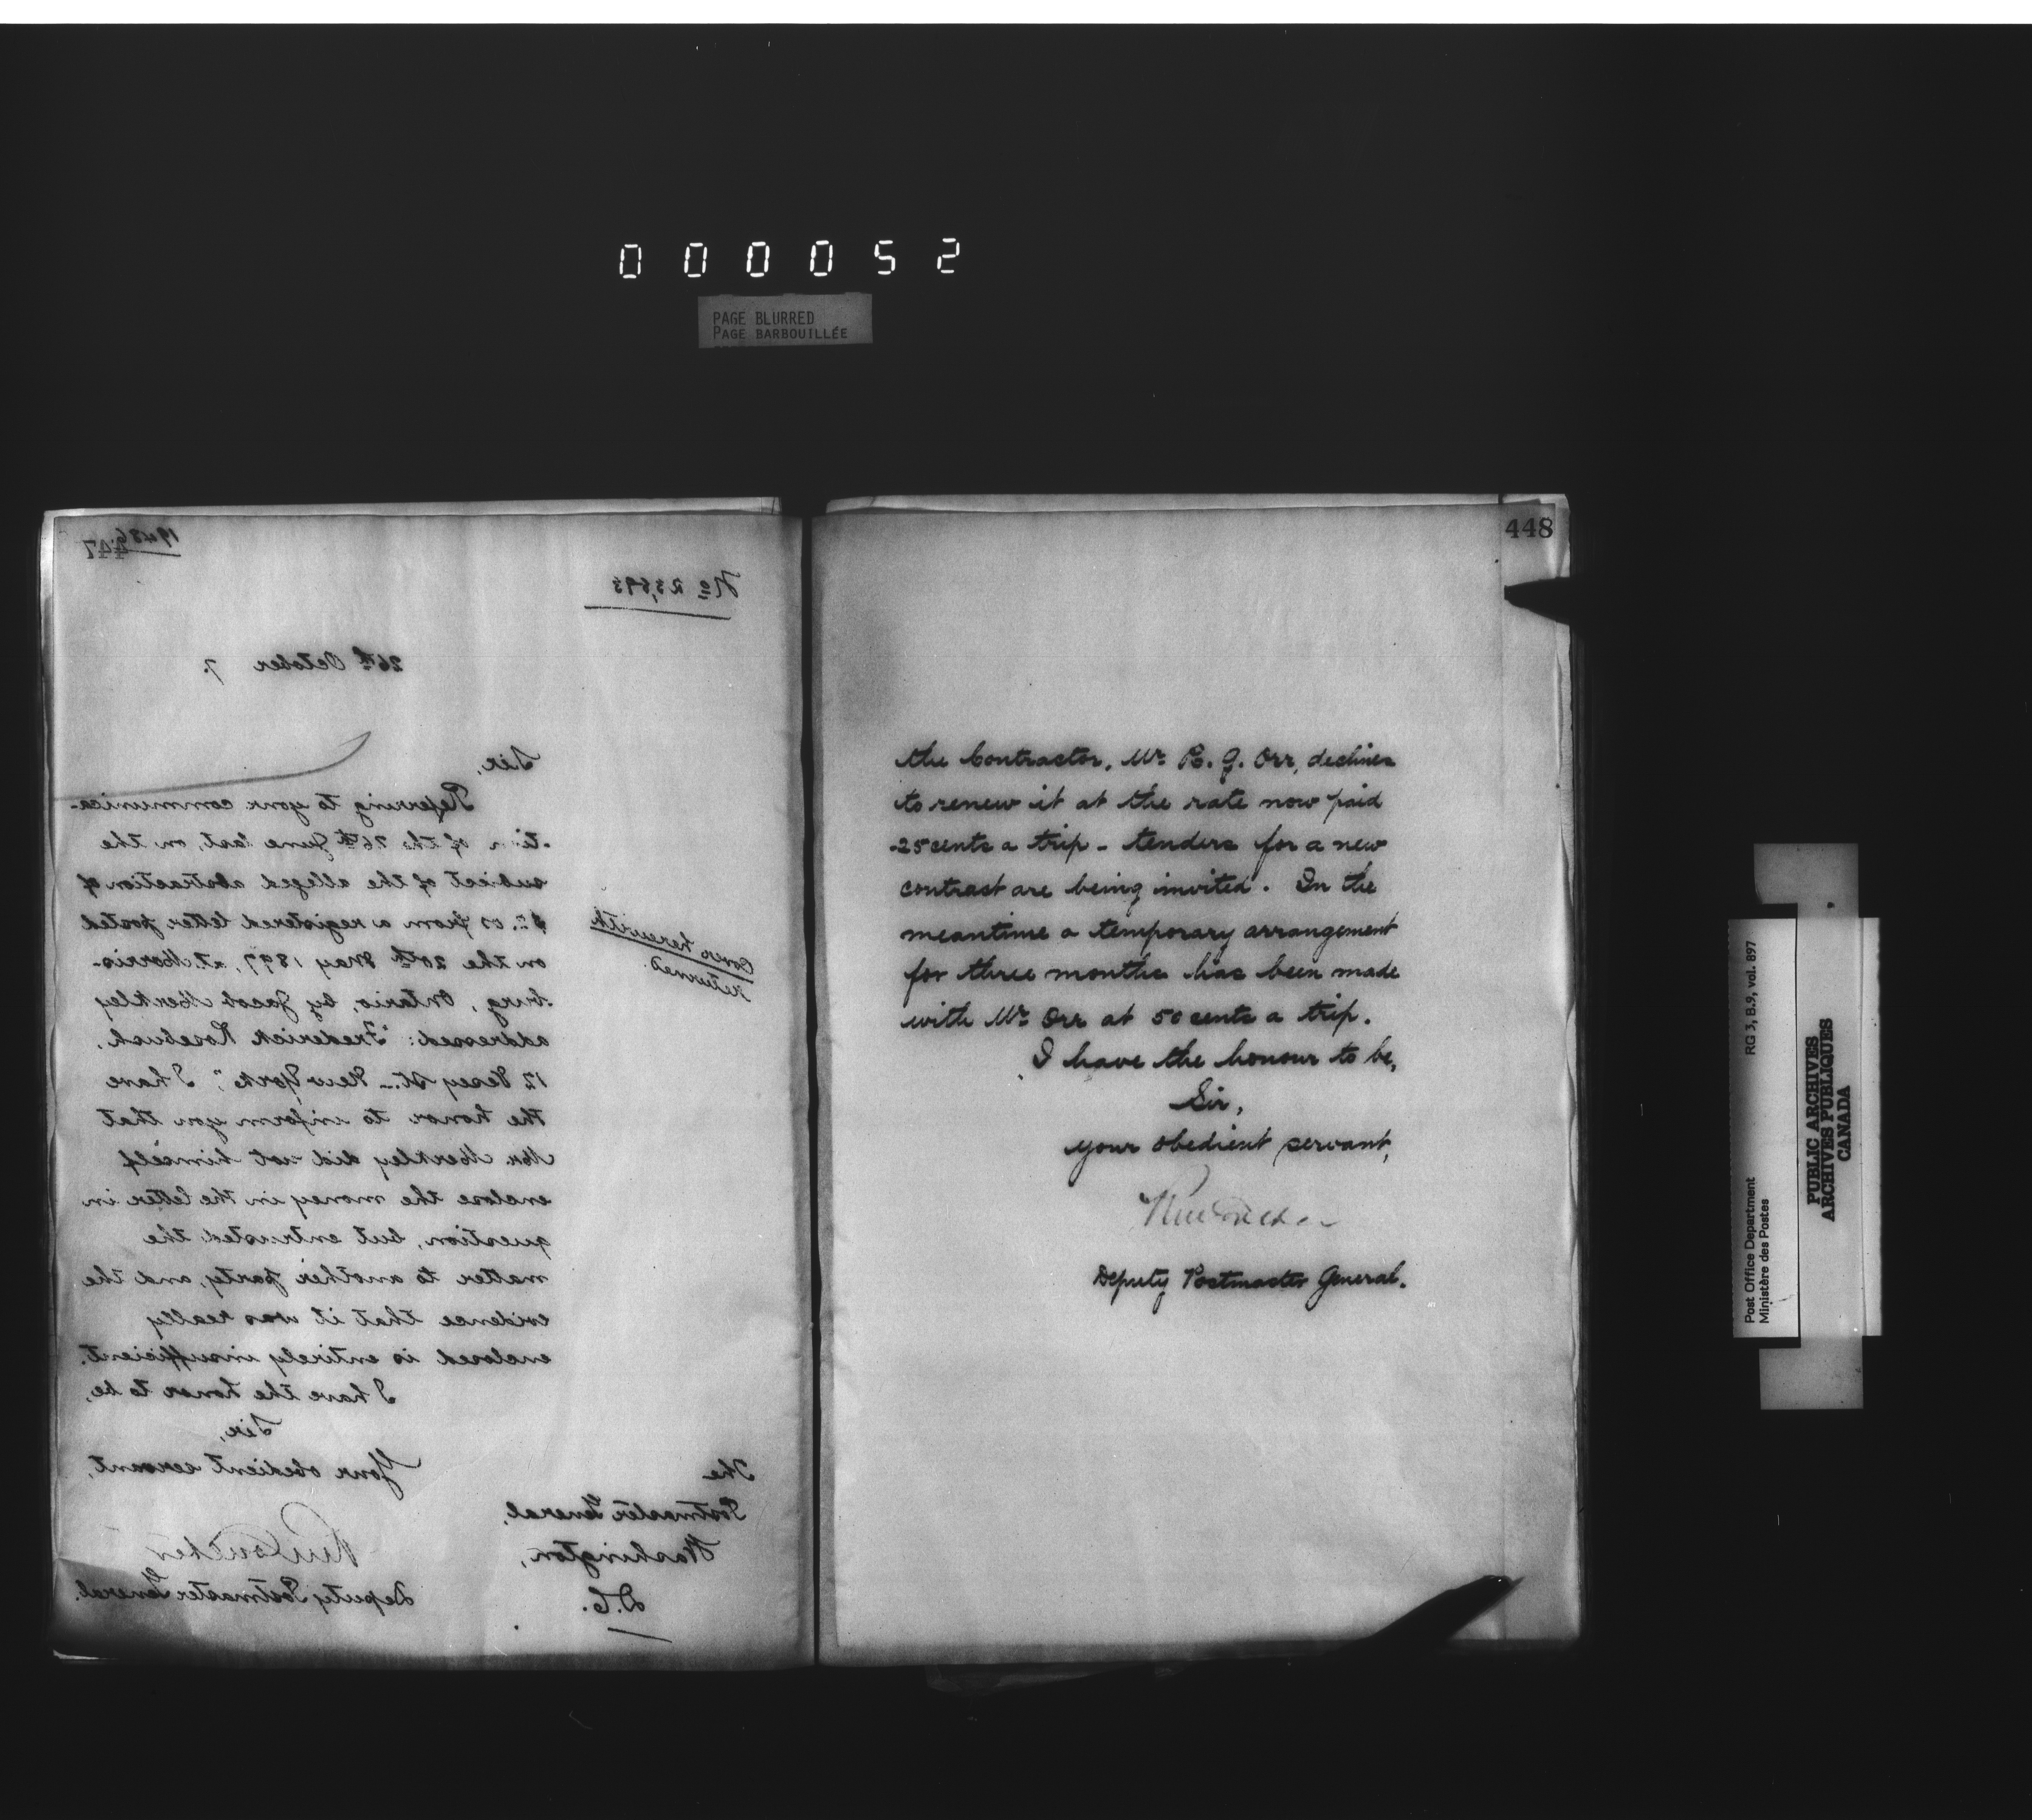 000052
PAGE BLURRED
PAGE BARBOUILLÉE
447
No 23,693
26th October 7.
Sir,
Referring to your communica-
-tion of the 26th June last, on the
subject of the alleged abstraction of
from a registered letter posted
on the 20th May 1897, at Morris-
-burg, Ontario, by Jacob Merkley
addressed: "Frederick Rosebush,
12 Vesey St. - New York", I have
the honor to inform you that
Mr. Merkley did not himself
enclose the money in the letter in
question, but entrusted the
matter to another party, and the
evidence that it was really
enclosed is entirely insufficient.
I have the honor to be,
Sir,
Your obedient servant,
Deputy Postmaster General.
Cover herewith
returned.
The
Postmaster General,
Washington,
D.C.
448
the Contractor, Mr R. G. Orr, declines
to renew it at the rate now paid
-25 cents a trip - tenders for a new
contract are being invited. In the
meantime a temporary arrangement
for three months has been made
with Mr Orr at 50 cents a trip.
I have the honour to be,
Sir,
your obedient servant,
Deputy Postmaster General.
Post Office Department
Ministère des Postes
RG 3, B.9, vol. 897
PUBLIC ARCHIVES
ARCHIVES PUBLIQUES
CANADA